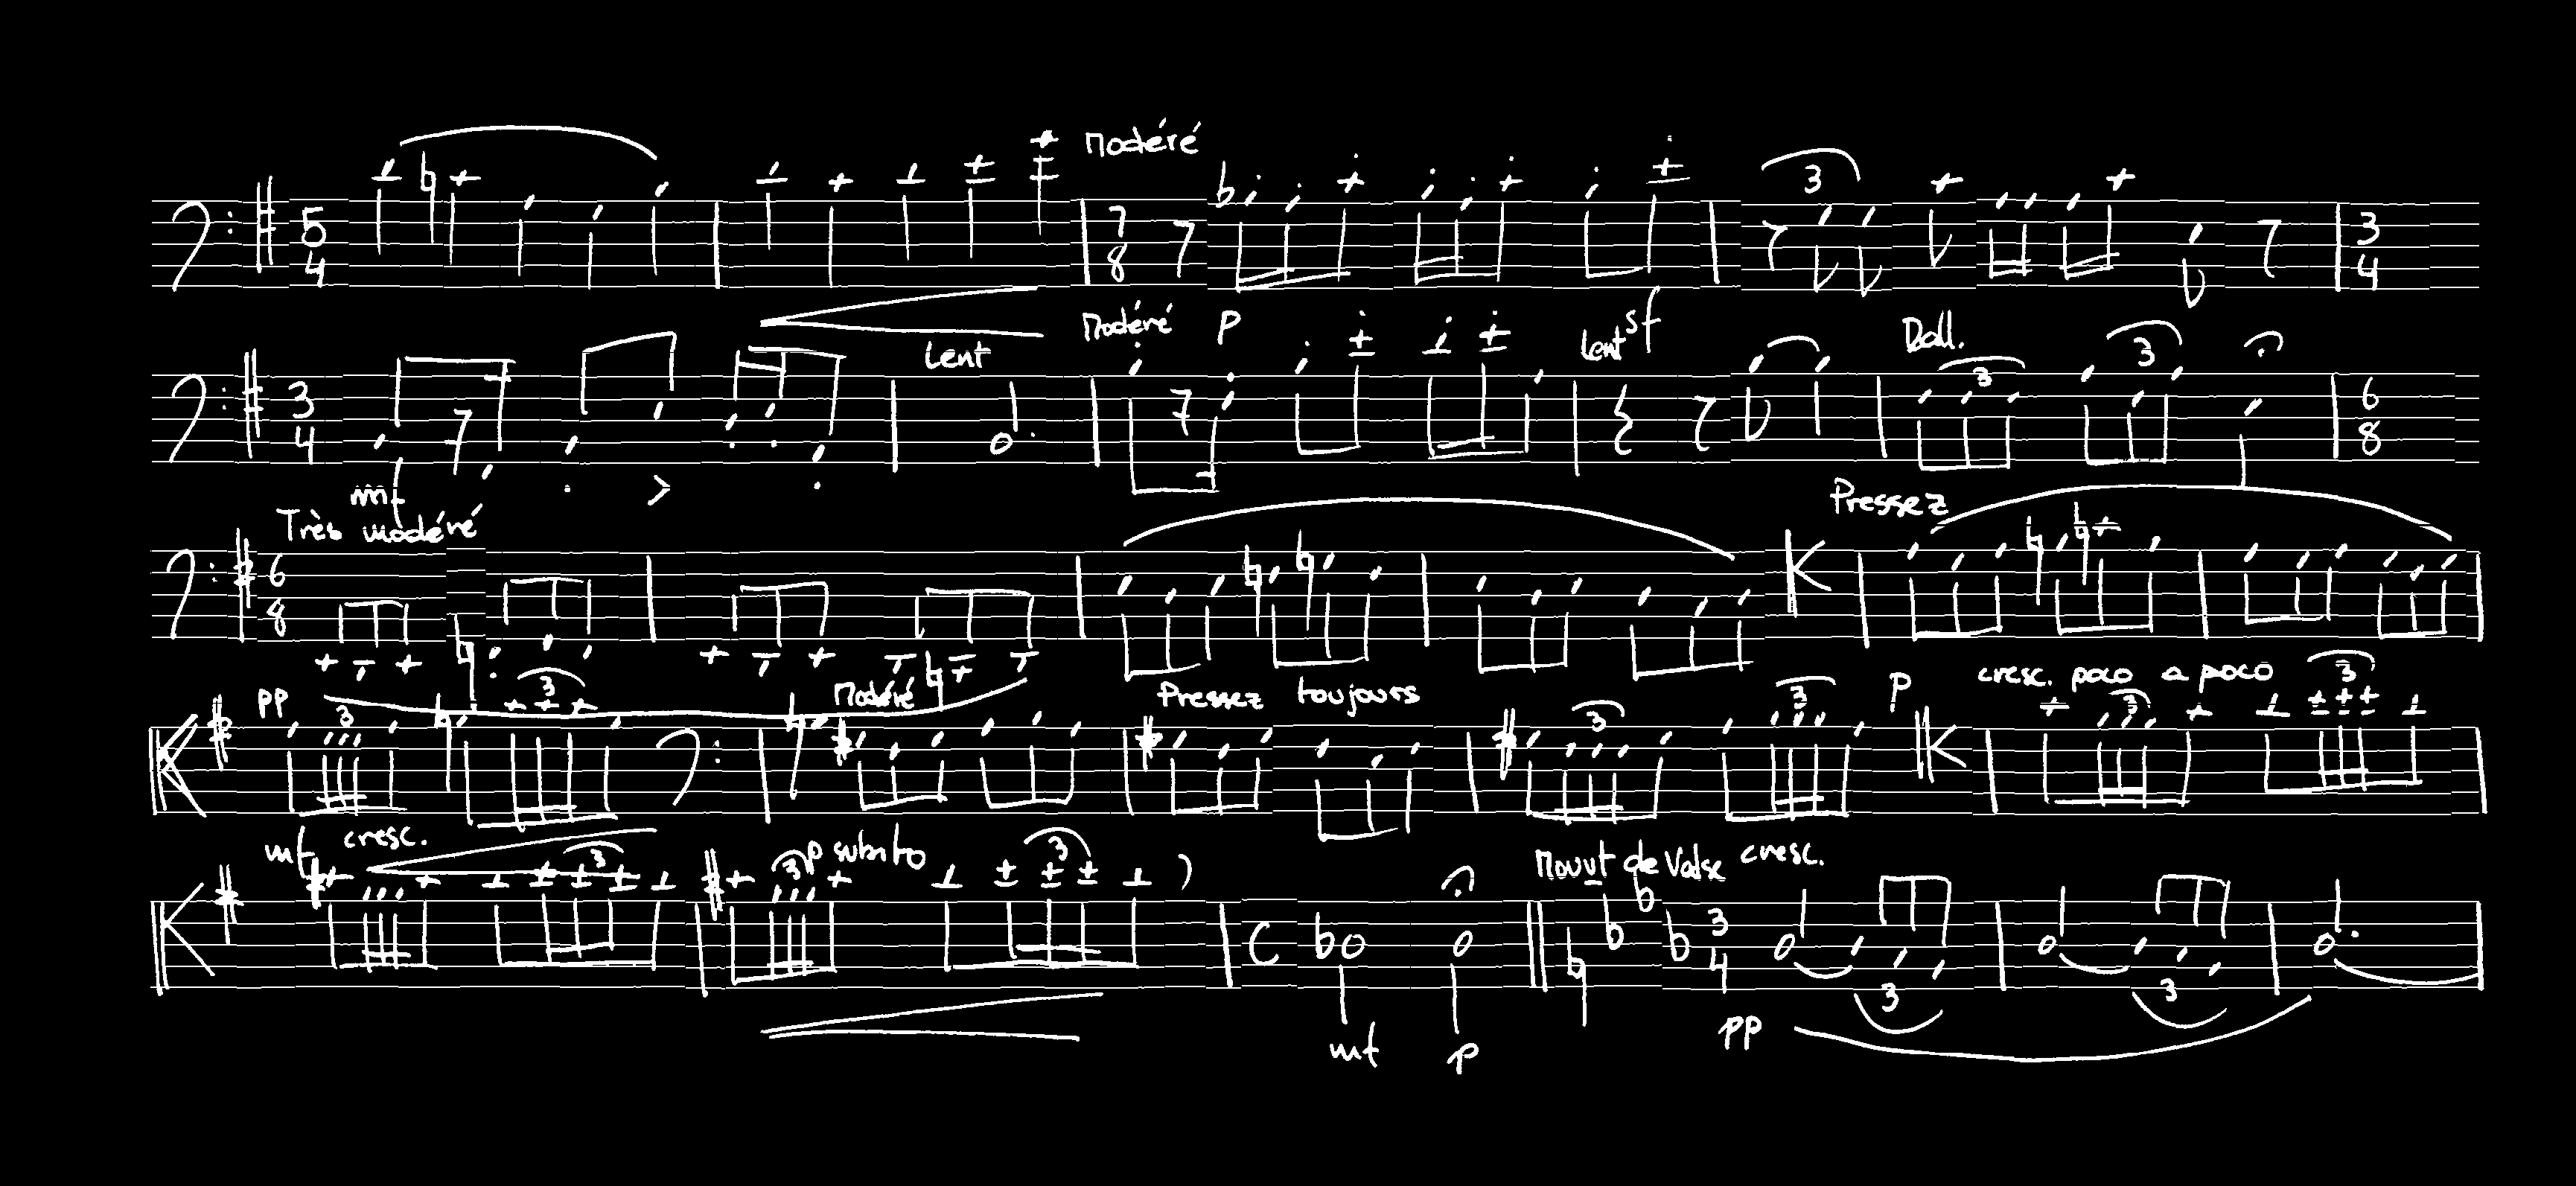 Modéré
5 4 7 8 3 3 4
Lent Modéré p Lent sf Rall.
3 4 3 3 6 8
mf
Très modéré Pressez
6 8
pp 3 3 Modéré Pressez toujours 3 3 p cresc. poco a poco 3 3
mf cresc. 3 3 p subito 3 Mouvt de Valse cresc.
C 3 4
3 3
mf p pp